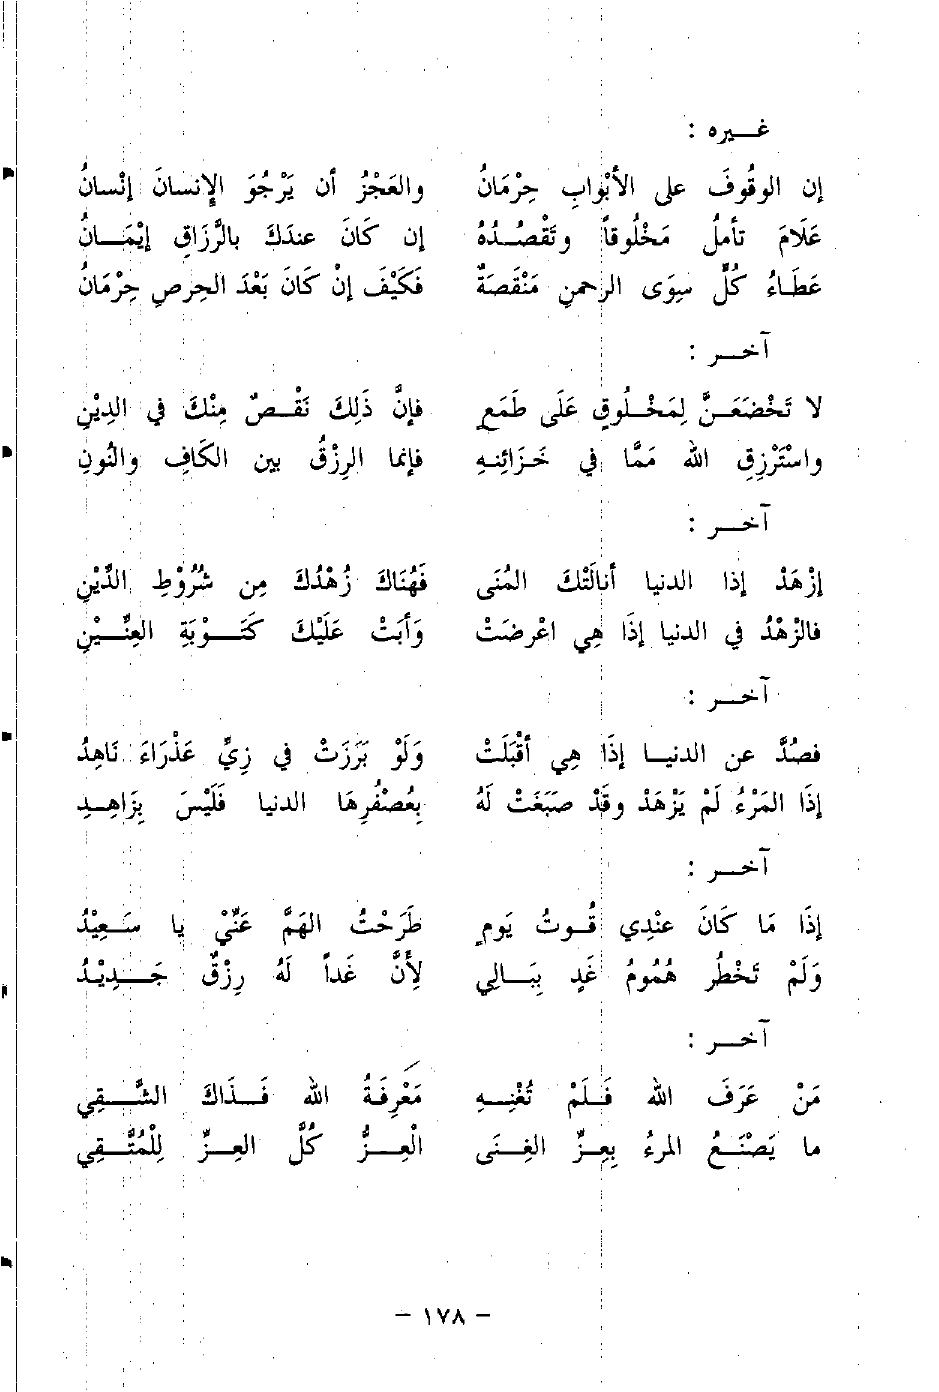 غيره :
إن الوقُوفَ على الأبْوابِ حِرْمَانُ والعَجْزُ أن يَرْجُوَ الإنسانَ إنْسانُ
عَلَامَ تأملُ مَخْلُوقاً وتَقْصُدُهُ إن كَانَ عندَكَ بالرَّزاقِ إيْمَانُ
عَطَاءُ كُلِّ سِوَى الرحمنِ مَنْقَصَةٌ فَكَيْفَ إنْ كَانَ بَعْدَ الحِرصِ حِرْمَانُ
آخر :
لا تَخْضَعَنَّ لِمَخْلُوقٍ عَلَى طَمَعٍ فإنَّ ذَلِكَ نَقْصٌ مِنْكَ في الدِيْنِ
واسْتَرْزِقِ الله مَمَّا في خَزَائِنِهِ فإنما الرِزْقُ بين الكَافِ والنُونِ
آخر :
إزْهَدْ إذا الدنيا أنالَتْكَ المُنَى فَهُنَاكَ زُهْدُكَ مِن شُرُوْطِ الدَّيْنِ
فالزْهْدُ في الدنيا إذَا هِي اعْرضَتْ وَأبَتْ عَلَيْكَ كَتَوْبَةِ العِنِّيْنِ
آخر :
فصُدَّ عن الدنيا إذَا هِي أقْبَلَتْ وَلَوْ بَرَزَتْ في زِيِّ عَذْرَاءَ نَاهِدُ
إذَا المَرْءُ لَمْ يَزْهَدْ وقَدْ صَبَغَتْ لَهُ بِعُصْفُرِهَا الدنيا فَلَيْسَ بِزَاهِدِ
آخر :
إذَا مَا كَانَ عنْدِي قُوتُ يَومٍ طَرَحْتُ الهَمَّ عَنِّيْ يا سَعِيْدُ
وَلَمْ تَخْطُر هُمُومُ غَدٍ بِبَالِي لِأَنَّ غَداً لَهُ رِزْقٌ جَدِيْدُ
آخر :
مَنْ عَرَفَ الله فَلَمْ تُغْنِهِ مَعْرِفَةُ الله فَذَاكَ الشَّقِي
ما يَصْنَعُ المرءُ بِعِزِّ الغِنَى الْعِزُّ كُلَّ العِزِّ لِلْمُتَّقِي
– ١٧٨ –